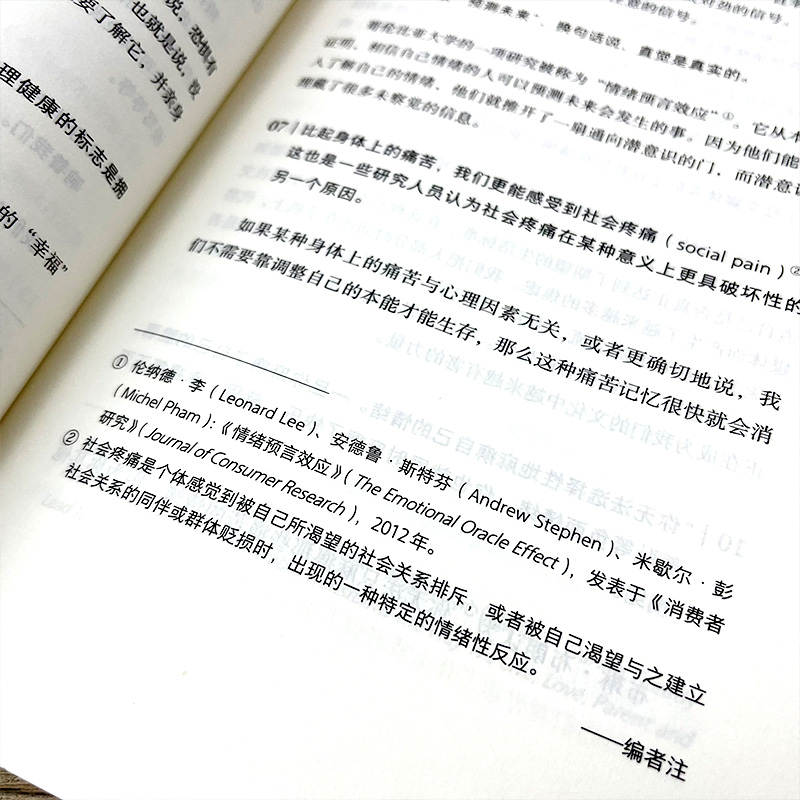 说，恐惧有
也就是说，没
要了解它，并亲身
理健康的标志是拥
的“幸福”
预测未来”，换句话说，直觉是真实的。
哥伦比亚大学的一项研究被称为“情绪预言效应”①。它从本
证明，相信自己情绪的人可以预测未来会发生的事。因为他们能
入了解自己的情绪，他们就推开了一扇通向潜意识的门，而潜意识
藏了很多未察觉的信息。
07 | 比起身体上的痛苦，我们更能感受到社会疼痛（social pain）②
这也是一些研究人员认为社会疼痛在某种意义上更具破坏性的
另一个原因。
如果某种身体上的痛苦与心理因素无关，或者更确切地说，我
们不需要靠调整自己的本能才能生存，那么这种痛苦记忆很快就会消
① 伦纳德·李（Leonard Lee）、安德鲁·斯特芬（Andrew Stephen）、米歇尔·彭
（Michel Pham）：《情绪预言效应》（The Emotional Oracle Effect），发表于《消费者
研究》（Journal of Consumer Research），2012年。
② 社会疼痛是个体感觉到被自己所渴望的社会关系排斥，或者被自己渴望与之建立
社会关系的同伴或群体贬损时，出现的一种特定的情绪性反应。
——编者注